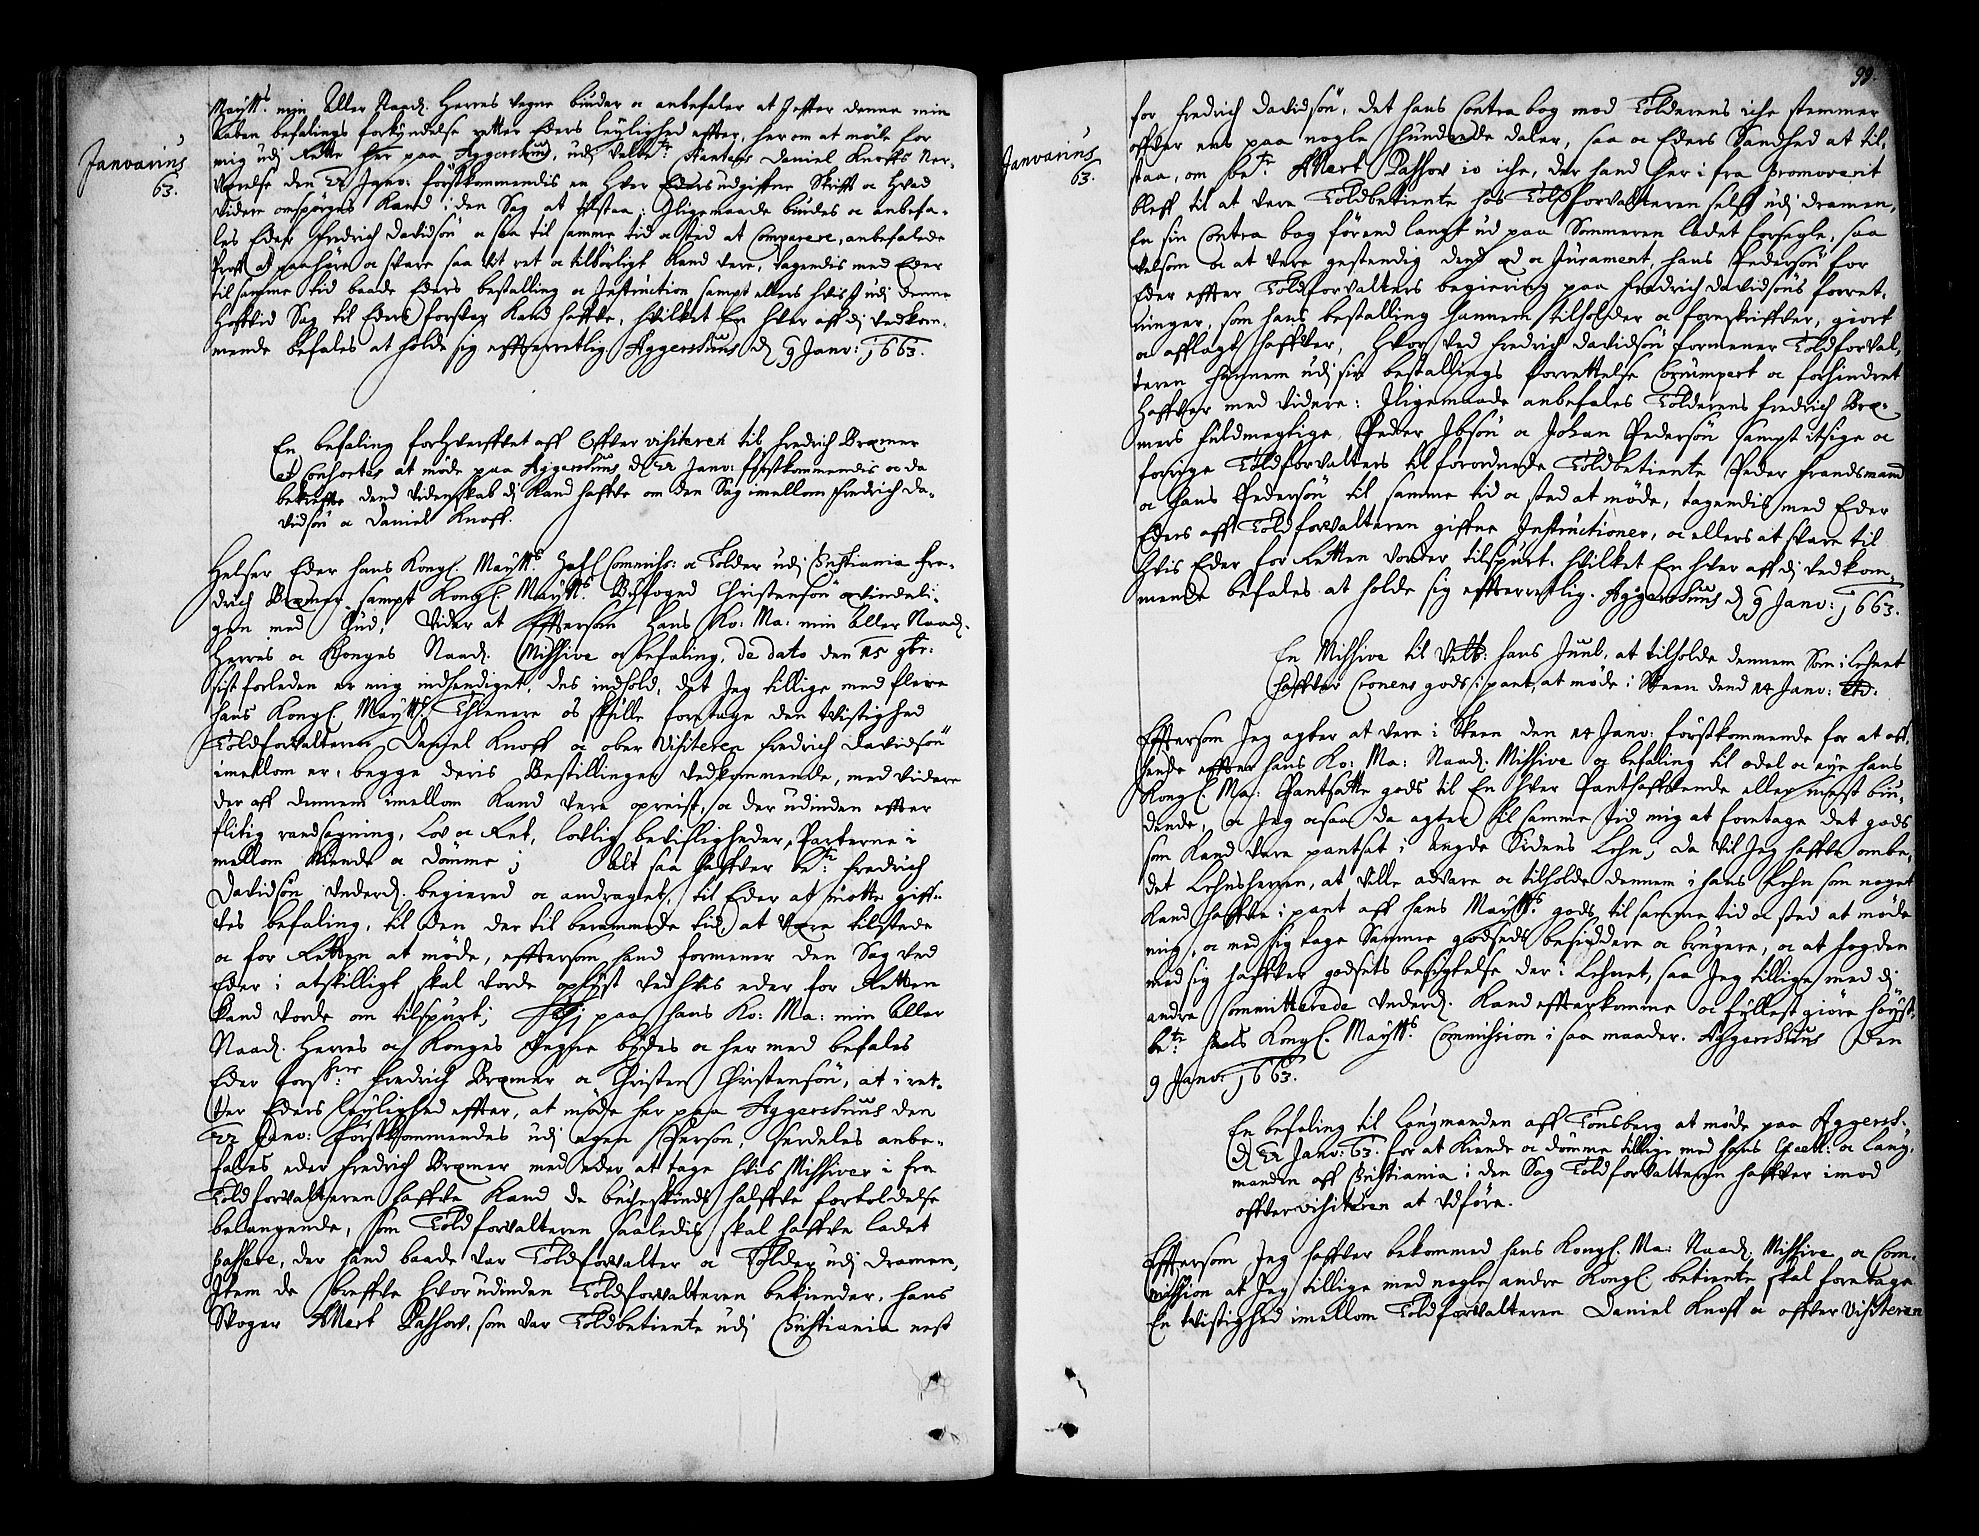 Januarius
63.
Maÿtts. min Aller Naadₗ. Herres vegne biuder oc anbefaler at I effter denne min
aaben befalings forkyndelse retter Eders leylighed effter, her om at møde for
mig udj Rette her paa Aggershuus, udj Daniel Knoffs Ner-
værelse den 22 Janv: førstkommendis en hver Eders udgiffne Skrifft oc hvad
videre omspørges kand i den Sag at ; Jligemaade biudes oc anbefa-
les Eder Fredrich Davidsøn oc saa til samme tid oc sted at Comparere, anbefalede
at paahøre oc svare saa vit ret oc tilbørligt kand vere, tagendis med Eder
til samme tid baade Eders bestalling oc Instruction sampt ellers hvis I udj denne
Sag til Eders forsvar kand haffve, hvilket En hver aff dj vedkom-
mende befales at holde sig effterretlig Aggershuus d. 9 Janv: 1663.
En befaling forhverffvet aff Offver visiteren til Fredrich Bremer
et Consortes at møde paa Aggershuus d. 22 Janv: førstkommendis oc da
bekreffte dend Videnskab dj kand haffve om den Sag imellom Fredrich Da-
vidsøn oc Daniel Knoff.
Helser Eder hans Kongl. Maÿtts. Commiss: oc Tolder udj Christiania Fre-
drich Bremer sampt Kongl. Maÿtts. Byfoged Christensøn
gen med Gud, Vider at Effttersom Hans Ko: Ma: min Aller Naadₗ.
Herres oc Konges Naadₗ. Missive oc befaling, de dato den 15 9br:
sist forleden er mig indhendiget, des indhold, det Jeg tillige med flere
hans Kongl. Maÿtts. Thienere os skulle foretage den tvistighed
Toldforvalteren Daniel Knoff oc ober Visiteren Fredrich Davidsøn
imellom er, begge deris Bestillinger vedkommende, med videre
der aff dennem imellom kand vere opreist, oc der udinden effter
flitig randsagning, Lov oc Ret, lovlig bevisligheder, Parterne i
mellom kiende oc dømme ; Alt saa haffver be.te: Fredrich
Davidsøn underd. begiered oc andraget, til Eder at motte giff-
ves befaling, til den der til berammede tid, at være tilstede
oc for Retten at møde, effttersom hand formener den Sag ved
Eder i atskilligt skal vorde oplyst ved hvis eder for Retten
kand vorde om tilspurt; paa hans Ko: Ma: min Aller
Naadₗ. Herres oc Konges Vegne bydes oc her med befales
Eder Fredrich Bremer oc Christen Christensøn, at i ret-
ter Eders leylighed effter, at møde her paa Aggershuus den
22 Janv: førstkommendes udj egen Person, serdeles anbe-
fales eder Fredrich Bremer med eder at tage hvis Missiver i fra
Toldforvalteren haffve kand de halffve fortoldelse
belangende, som Toldforvalteren saaledis skal haffve ladet
passere, der hand baade var Toldforvalter oc Tolder udj Dramen,
Item de breffve hvor udinden Toldforvalteren bekiender, hans
Svoger Albert Rathsov, som var Toldbetiente udj Christiania nest
99.
Januarius
63.
for Fredrich Davidsøn, det hans Contra bog med Tolderens iche stemmer
offver ens paa nogle hundrede daler, saa oc Eders Sandhed at til-
staa, om be.te Albert Rathsov io iche, der hand her i fra promoverit
bleff til at vere Toldbetiente hos Toldforvalteren selff udj Dramen,
En sin Contra bog førend langt ud paa Sommeren ladet forsegle, saa
velsom oc at vere gestendig dend æd oc Jurament, hans Pedersøn for
Eder effter Toldforvalters begiering paa Fredrich Davidsøns forret-
ninger, som hans bestalling hannem tilholder oc foreskriffver, giort
oc afflagt haffver, Hvor ved Fredrich Davidsøn formener Toldforval-
teren hannem udj sin bestallings forrettelse Corumpert oc forhindret
haffver med videre: Jligemaade anbefales Tolderens Fredrich Bre-
mers fuldmegtige, Peder Ibsøn oc Johan Pedersøn sampt itzige oc
forrige Toldforvalters tilforordnede Toldbetiente Peder Frandsmand
oc hans Pedersøn til samme tid oc sted at møde, tagendis med Eder
Eders aff Toldforvalteren giffne Instructioner, oc ellers at svare til
hvis Eder for Retten vorder tilspurt. hvilket En hver aff dj vedkom-
mende befales at holde sig effterretlig. Aggershuus d. 9 Janv: 1663.
En Missive til Velb: hans Juul, at tilholde dennem Som i Lehnet
haffver Cronens gods i pant, at møde i Skeen dend 14 Janv:
Efftersom Jeg agter at vere i Skeen den 14 Janv: førstkommende for at aff-
hende effter hans Ko: Ma: Naadₗ. Missive oc befaling til odel oc eye hans
Kongl. Ma: Pantsatte gods til En hver Panthaffvende eller mest biu-
dende, oc Jeg ocsaa da agter til samme tid mig at foretage det gods
som kand vere pantsat i Sidens Lehn, da vil Jeg haffve ombe-
det Lehnsherren, at ville advare oc tilholde dennem i hans Lehn som noget
kand haffve i pant aff hans Maÿtts. gods til samme tid oc sted at møde
mig, oc med sig tage Samme godseds besiddere oc brugere, oc at fogden
med sig haffver godsets besigtelse der i Lehnet, saa Jeg tillige med dj
andre Committerede underd. kand effterkomme oc fyllest giøre høyst-
be.te hans Kongl. Maÿtts. Commission i saa maader. Aggershuus Den
9 Janv: 1663.
En befaling til Laugmanden aff Tonsberg at møde paa Aggersh.
d. 22 Janv: 63. for at kiende oc dømme tillige med hans oc Laug-
manden aff Christiania i den Sag Toldforvalteren haffver imod
offvervisiteren at Udføre.
Efftersom Jeg haffver bekommed hans Kongl. Ma: Naadₗ. Missive oc Com-
mission at Jeg tillige med nogle andre Kongl. betiente skal foretage
En tvistighed imellom Toldforvalteren Daniel Knoff oc offver Visiteren